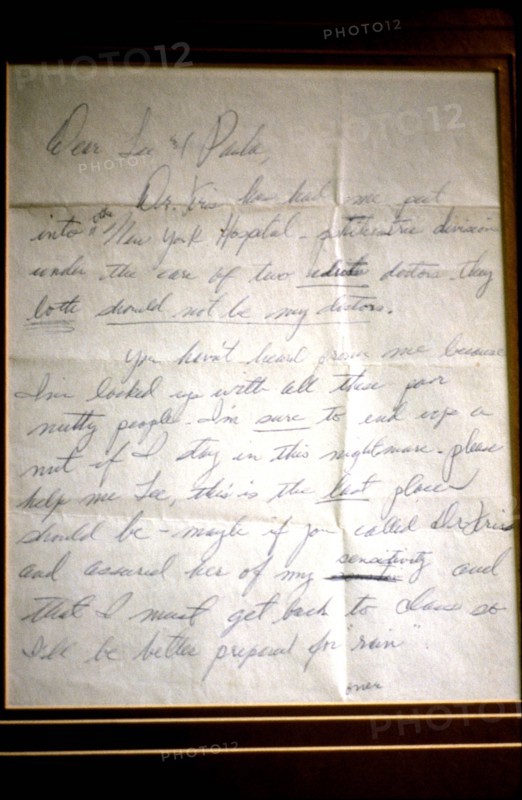 Dear Lee & Paula,
Dr. Kris has had me put
into the New York Hospital - division
under the care of two doctors. they
both should not be my doctors.
You haven't heard from me because
I'm locked up with all these poor
nutty people. I'm sure to end up a
nut if I stay in this nightmare. please
help me Lee, this is the last place I
should be - maybe if you called Dr Kris
and assured her of my sensitivity and
that I must get back to class so
I'll be better prepared for "rain".
over
PHOTO12
PHOTO12
PHOTO12
PHOTO12
PHOTO12
PHOTO12